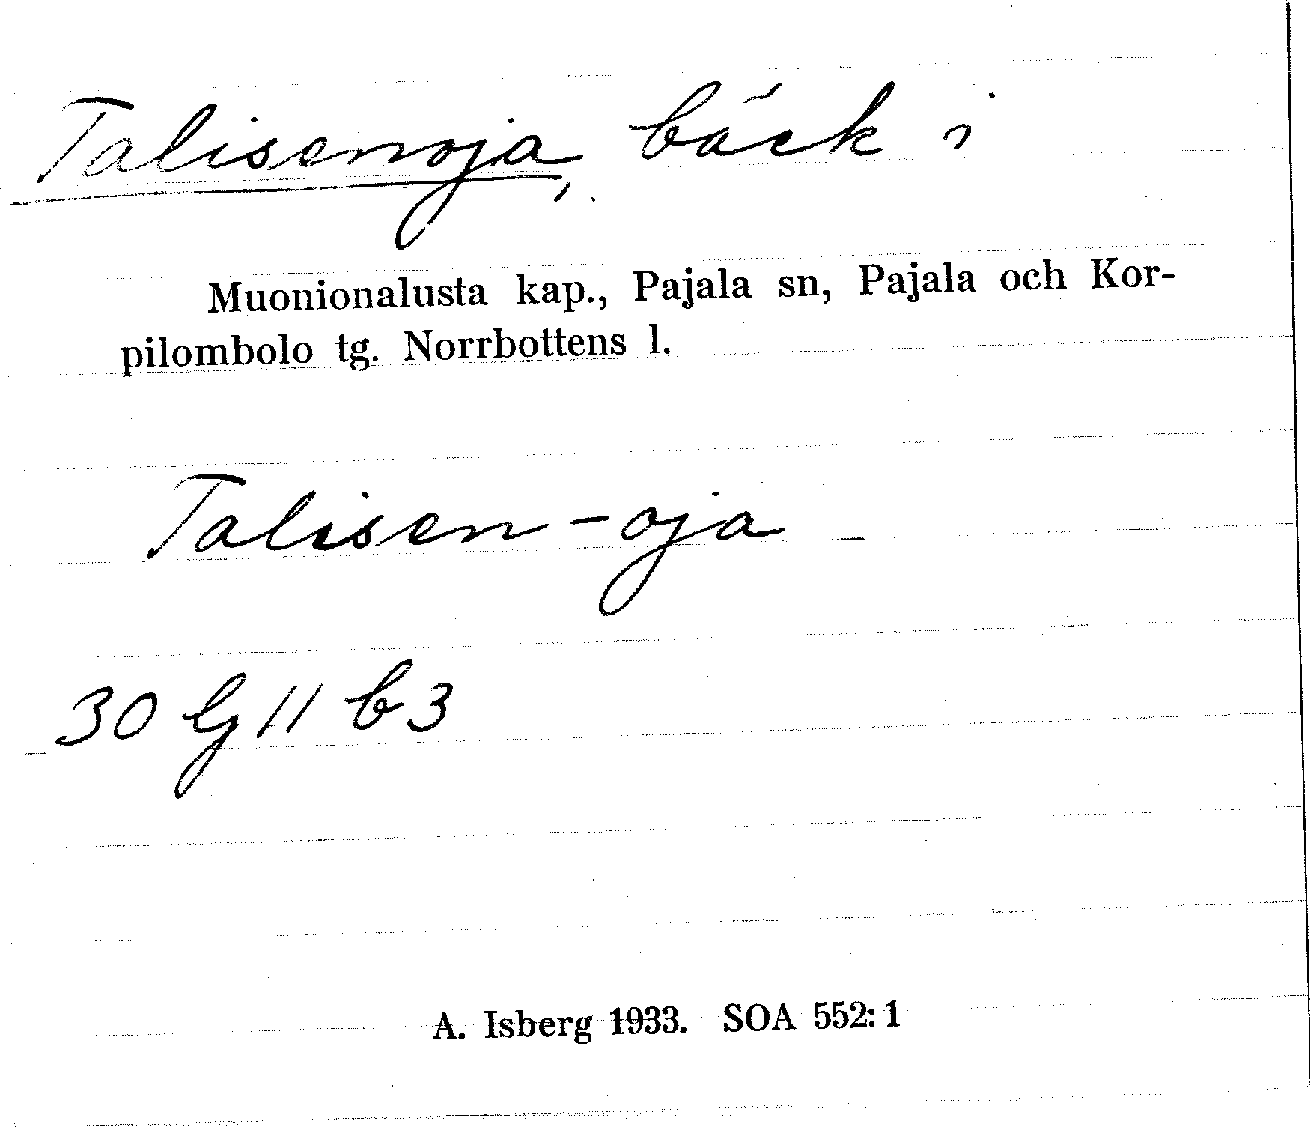 Talisenoja, bäck i
Muonionalusta kap., Pajala sn, Pajala och Kor-
pilombolo tg. Norrbottens l.
Talisen-oja
30 G 11 b 3
A. Isberg 1933. SOA 552:1